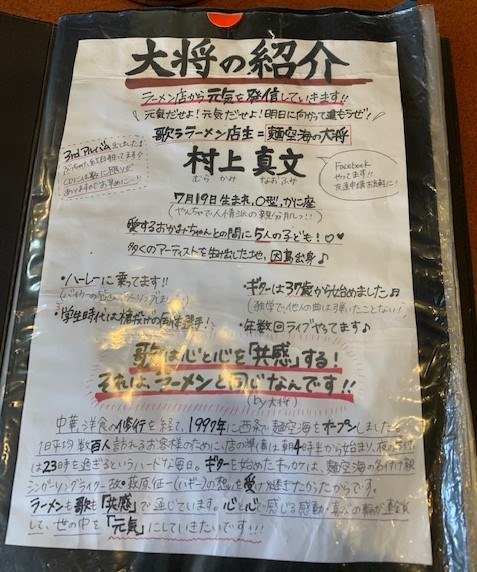 大将の紹介
ラーメン店から元気を発信していきます!!
元気だせよ!元気だせよ!明日に向かって道もラゼ!
歌うラーメン店主=麺空海の大将
3rdアルバム出しました
村上真文
むらかみ なおふみ
Facebook
やってます!!
友達申請お気軽に!
7月19日生まれ、O型、かに座
(やんちゃで人情派の親分肌っ!!)
愛するおかみちゃんとの間に5人の子ども!♡♥
多くのアーティストを生み出した地、因島出身♪
・ハーレーに乗ってます!!
・ギターは37歳から始めました♫
(独学で他人の曲は弾いたことない!)
・学生時代は槍投げの国体選手!
・年数回ライブやってます♪
歌は心と心を「共感」する!
それは、ラーメンと同じなんです!!
(by大将)
中華、洋食の修行を経て、1997年に西条で麺空海をオープンしました。
1日平均数百人訪れるお客様のために、店の準備は朝4時半から始まり、夜の
は23時を過ぎるというハードな毎日。ギターを始めたキッカケは、麺空海の名付け親
シンガーソングライター故・萩原征一(ハギー)の想いを受け継ぎたかったからです。
ラーメンも歌も「共感」で通じています。心と心で感じる感動・喜びの輪が連鎖
して、世の中を「元気」にしていきたいです!!!